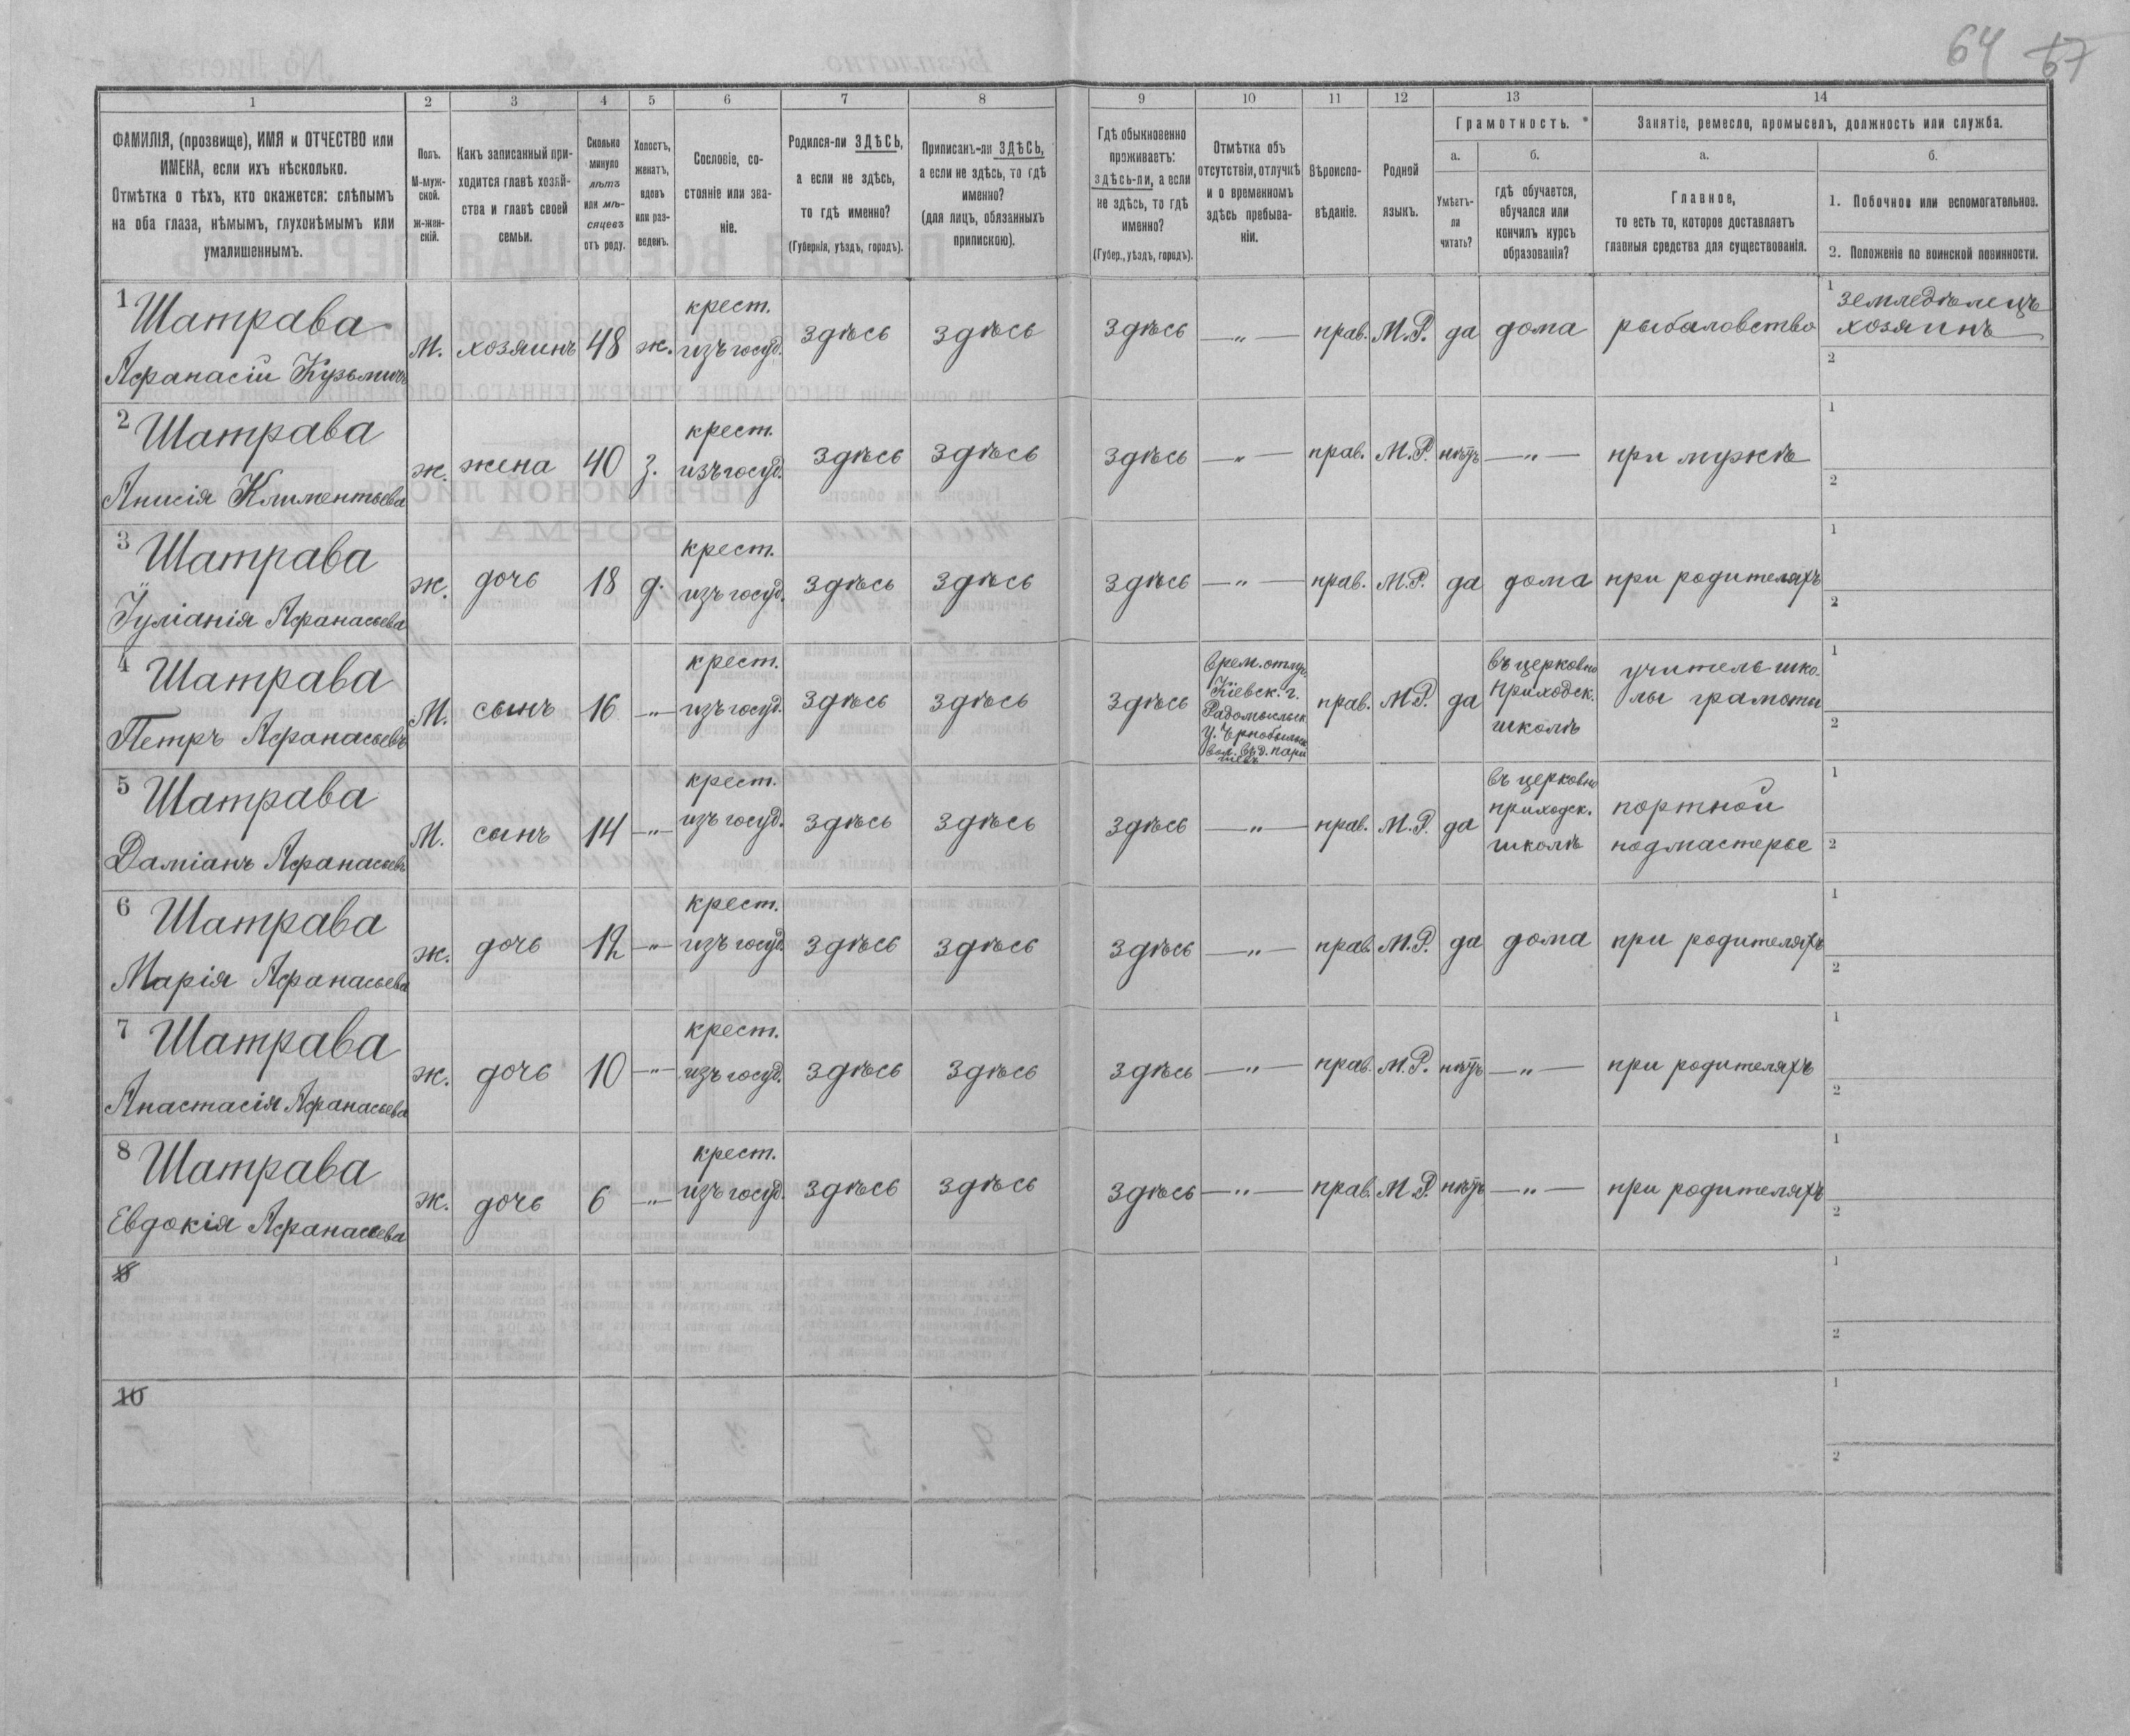 64 67
1 2 3 4 5 6 7 8 9 10 11 12 13 14
ФАМИЛІЯ, (прозвище), ИМЯ и ОТЧЕСТВО или
ИМЕНА, если ихъ нѣсколько.
Отмѣтка о тѣхъ, кто окажется: слѣпымъ
на оба глаза, нѣмымъ, глухонѣмымъ или
умалишеннымъ.
Полъ.
М-муж-
ской.
ж-жен-
скій.
Какъ записанный при-
ходится главѣ хозяй-
ства и главѣ своей
семьи.
Сколько
минуло
лѣтъ
или мѣ-
сяцевъ
отъ роду.
Холостъ,
женатъ,
вдовъ
или раз-
веденъ.
Сословіе, со-
стояніе или зва-
ніе.
Родился-ли ЗДѢСЬ,
а если не здѣсь,
то гдѣ именно?
(Губернія, уѣздъ, городъ).
Приписанъ-ли ЗДѢСЬ,
а если не здѣсь, то гдѣ
именно?
(для лицъ, обязанныхъ
припискою).
Гдѣ обыкновенно
проживаетъ:
здѣсь-ли, а если
не здѣсь, то гдѣ
именно?
(Губер., уѣздъ, городъ).
Отмѣтка объ
отсутствіи, отлучкѣ
и о временномъ
здѣсь пребыва-
ніи.
Вѣроиспо-
вѣданіе.
Родной
языкъ.
Грамотность.
а.
Умѣетъ-
ли
читать?
б.
гдѣ обучается,
обучался или
кончилъ курсъ
образованія?
Занятіе, ремесло, промыселъ, должность или служба.
а.
Главное,
то есть то, которое доставляетъ
главныя средства для существованія.
б.
1. Побочное или вспомогательное.
2. Положеніе по воинской повинности.
1 Шатрава
Афанасій Кузьмичъ
м. хозяинъ 48 ж.
крест.
изъ госуд.
здѣсь здѣсь здѣсь —„— прав. М.Р. да дома рыболовство
1 земледѣлецъ
хозяинъ
2
2 Шатрава
Анисія Климентьева
ж. жена 40 з.
крест.
изъ госуд.
здѣсь здѣсь здѣсь —„— прав. М.Р. нѣтъ —„— при мужѣ
1
2
3 Шатрава
Іуліанія Афанасьева
ж. дочь 18 д.
крест.
изъ госуд.
здѣсь здѣсь здѣсь —„— прав. М.Р. да дома при родителяхъ
1
2
4 Шатрава
Петръ Афанасьевъ
М. сынъ 16 —„—
крест.
изъ госуд.
здѣсь здѣсь здѣсь
Врем. отлуч.
Кіевск. г.
Радомысльск.
у. Чернобыльск.
вол.
прав. М.Р. да
въ церковно
приходск.
школѣ
учитель шко-
лы грамоты
1
2
5 Шатрава
Даміанъ Афанасьевъ
М. сынъ 14 —„—
крест.
изъ госуд.
здѣсь здѣсь здѣсь —„— прав. М.Р. да
въ церковно
приходск.
школѣ
портной
подмастерье
1
2
6 Шатрава
Марія Афанасьева
ж. дочь 12 —„—
крест.
изъ госуд.
здѣсь здѣсь здѣсь —„— прав. М.Р. да дома при родителяхъ
1
2
7 Шатрава
Анастасія Афанасьева
ж. дочь 10 —„—
крест.
изъ госуд.
здѣсь здѣсь здѣсь —„— прав. М.Р. нѣтъ —„— при родителяхъ
1
2
8 Шатрава
Евдокія Афанасьева
ж. дочь 6 —„—
крест.
изъ госуд.
здѣсь здѣсь здѣсь —„— прав. М.Р. нѣтъ —„— при родителяхъ
1
2
1
2
10
1
2